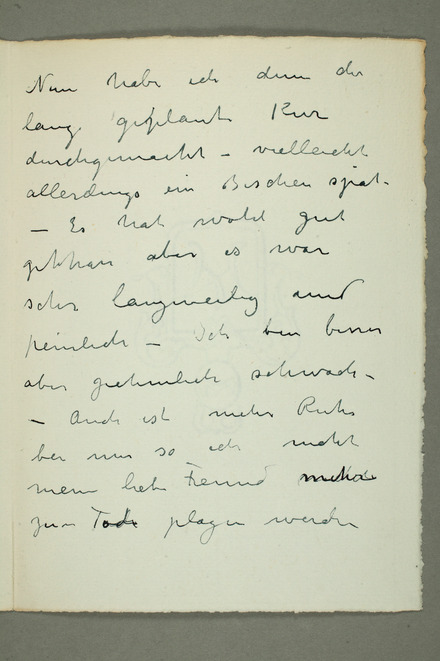 Nun habe ich denn die
lang geplante Kur
durchgemacht – vielleicht
allerdings ein Bischen spät.
– Es hat wohl gut
gethan aber es war
sehr langweilig und
peinlich – Ich bin besser
aber ziemlich schwach –
– Auch ist mehr Ruhe
bei mir so ich nicht
mein lieber Freund
zu Tode plagen werde